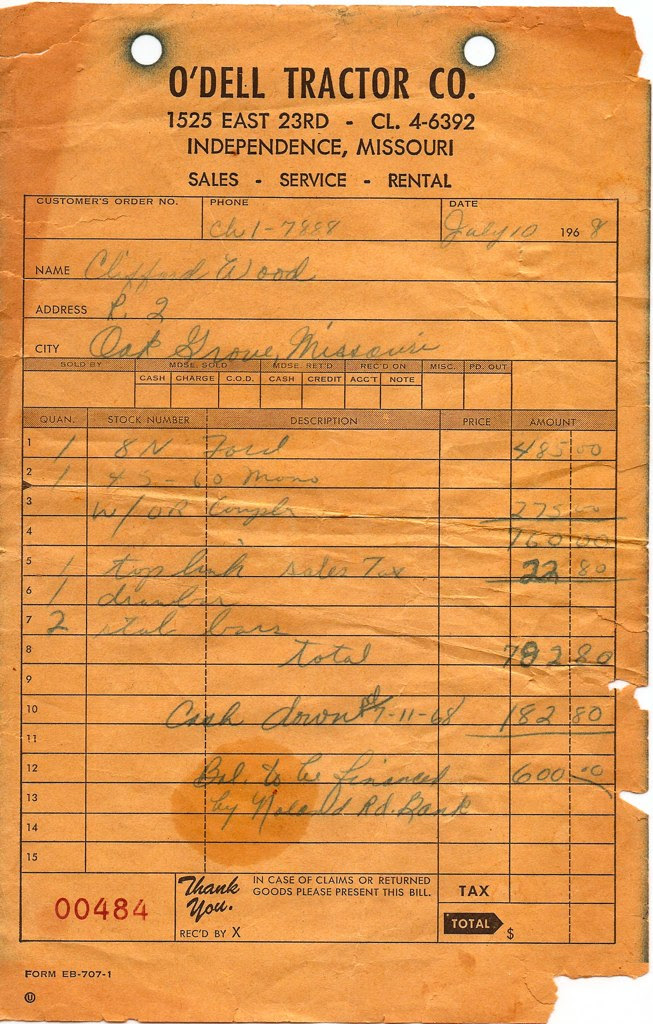 O'DELL TRACTOR CO.
1525 EAST 23RD - CL. 4-6392
INDEPENDENCE, MISSOURI
SALES - SERVICE - RENTAL
CUSTOMER'S ORDER NO. PHONE DATE
Ch 1-7888 July 10 1968
NAME Clifford Wood
ADDRESS R. 2
CITY Oak Grove, Missouri
SOLD BY MDSE. SOLD MDSE. RET'D REC'D ON MISC. PD. OUT
CASH CHARGE C.O.D. CASH CREDIT ACC'T NOTE
QUAN. STOCK NUMBER DESCRIPTION PRICE AMOUNT
1 1 8N Ford 485 00
2 1 45-60 Mono
3 W/OR Coupler 275 00
4 760 00
5 1 top link Sales Tax 22 80
6 1 drawbar
7 2 bars
8 Total 782 80
9
10 Cash down 7-11-68 182 80
11
12 Bal. to be financed 600 00
13 by Noland Rd. Bank
14
15
00484
Thank You.
IN CASE OF CLAIMS OR RETURNED GOODS PLEASE PRESENT THIS BILL.
REC'D BY X
TAX
TOTAL $
FORM EB-707-1